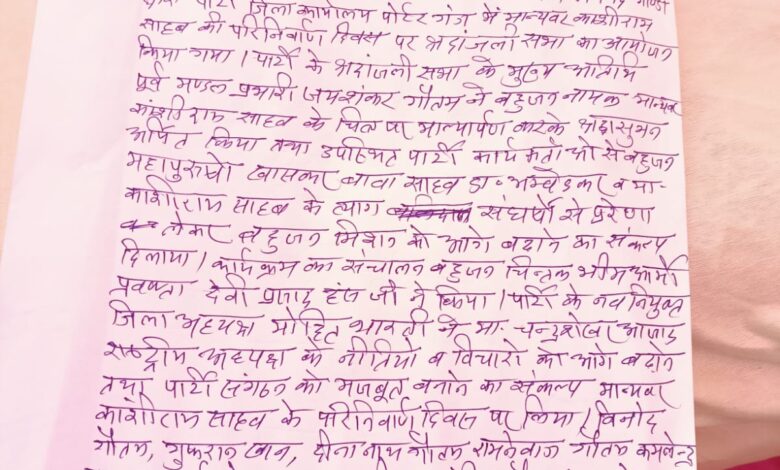 पार्टी जिला कार्यालय पोर्टर गंज में मान्यवर काशीराम
साहब की परिनिर्वाण दिवस पर श्रद्धांजली सभा का आयोजन
किया गया। पार्टी के श्रद्धांजली सभा के मुख्य अतिथि
पूर्व मण्डल प्रभारी जयशंकर गौतम ने बहुजन नायक मान्यवर
कांशीराम साहब के चित्र पर माल्यार्पण करके श्रद्धासुमन
अर्पित किया तथा उपस्थित पार्टी कार्यकर्ताओं से बहुजन
महापुरुषों खासकर बाबा साहब डा॰ अम्बेडकर व मा॰
काशीराम साहब के त्याग संघर्षो से प्रेरणा
लेकर बहुजन मिशन को आगे बढाने का संकल्प
दिलाया। कार्यक्रम का संचालन बहुजन चिन्तक भीम आर्मी
प्रवक्ता देवी प्रसाद हंस जी ने किया। पार्टी के नव नियुक्त
जिला अध्यक्ष मोहित भारती ने मा॰ चन्द्रशेखर आजाद
राष्ट्रीय अध्यक्ष के नीतियो व विचारो को आगे बढाने
तथा पार्टी संगठन को मजबूत बनाने का संकल्प मान्यवर
काशीराम साहब के परिनिर्वाण दिवस पर किया। विनोद
गौतम, गुफरान खान, दीना नाथ गौतम रामनेवाज गौतम कमलेन्द्र